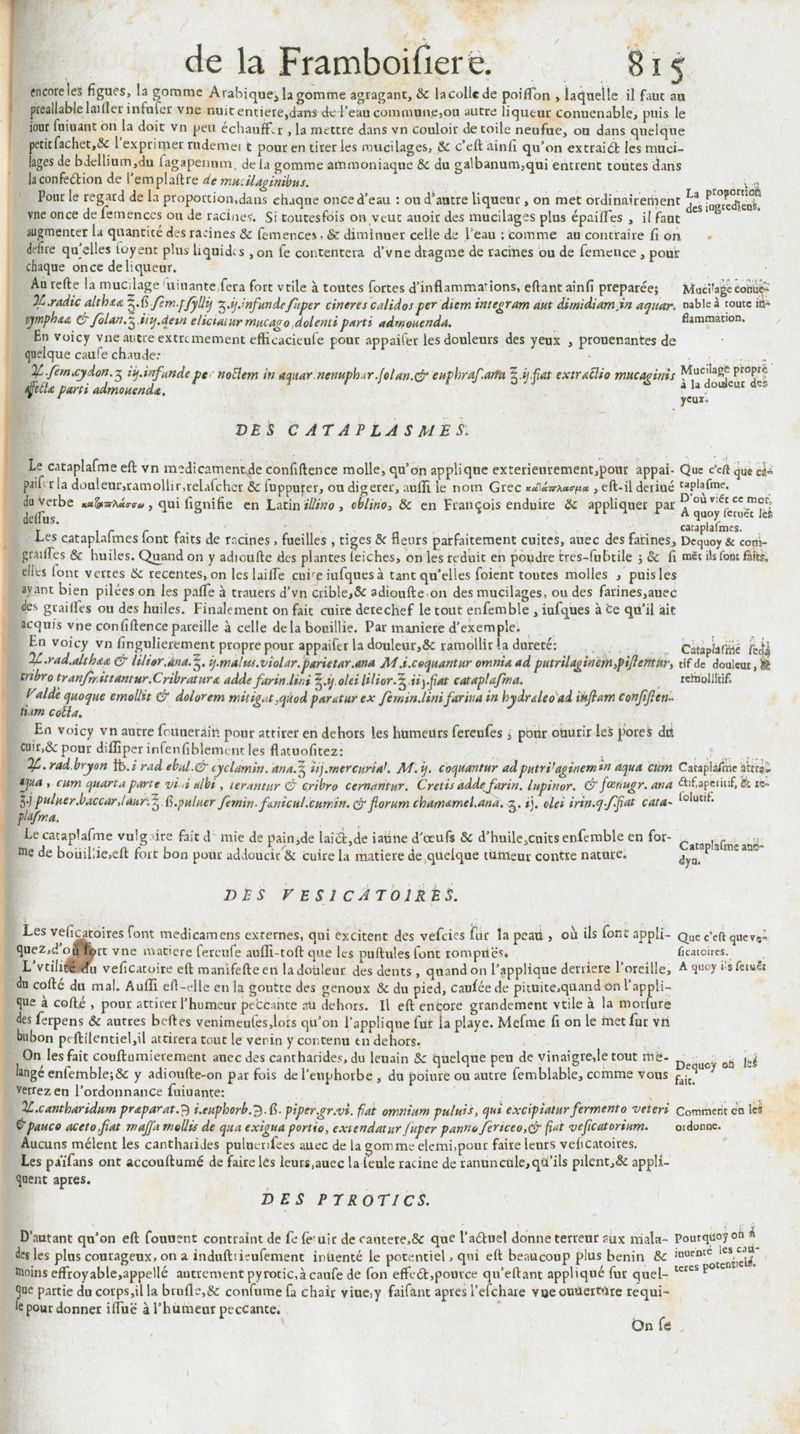 de la Framboiſiere. 815
encore les figues, la gomme Arabique, la gomme agragant, & la colle de poiſſon, laquelle il faut au
preallable laiſſer infuſer vne nuit entiere, dans de l'eau commune, ou autre liqueur conuenable, puis le
iour ſuiuant on la doit vn peu échauffer, la mettre dans vn couloir de toile neufue, ou dans quelque
petit ſachet, & l'exprimer rudement pour en tirer les mucilages, & c'eſt ainſi qu'on extraict les muci-
lages de bdellium, du ſagapenum, de la gomme ammoniaque & du galbanum, qui entrent toutes dans
la confection de l'emplaſtre de mucilaginibus.
Pour le regard de la proportion, dans chaque once d'eau : ou d'autre liqueur, on met ordinairement
vne once de ſemences ou de racines. Si toutesfois on veut auoir des mucilages plus épaiſſes, il faut
augmenter la quantité des racines & ſemences, & diminuer celle de l'eau : comme au contraire ſi on
deſire qu'elles ſoyent plus liquides, on ſe contentera d'vne dragme de racines ou de ſemence, pour
chaque once de liqueur.
La proportion
des ingrediens.
Au reſte la mucilage ſuiuante ſera fort vtile à toutes ſortes d'inflammations, eſtant ainſi preparée;
♃. radic althææ ℥.ß. ſem. pſyllij ʒ.ij. infunde ſuper cineres calidos per diem integram aut dimidiam, in aquar.
nymphææ & ſolan. ℥. iiij. dein eliciatur mucago, dolenti parti admouenda.
Mucilage conue-
nable à toute in-
flammation.
En voicy vne autre extremement efficacieuſe pour appaiſer les douleurs des yeux, prouenantes de
quelque cauſe chaude:
♃. ſem. cydon. ʒ iij. infunde per noctem in aquar nenuphar. ſolan. & euphraſ. ana ℥. ij. fiat extractio mucaginis
affectæ parti admouendæ.
Mucilage propre
à la douleur des
yeux.
DES CATAPLASMES.
Le cataplaſme eſt vn medicament de conſiſtence molle, qu'on applique exterieurement, pour appai-
paiſer la douleur, ramollir, relaſcher & ſuppurer, ou digerer, auſſi le nom Grec κατάπλασμα, eſt-il deriué
du verbe καταπλάσσω, qui ſignifie en Latin illino, oblino, & en François enduire & appliquer par
deſſus.
Que c'eſt que ca-
taplaſme.
D'où viẽt ce mot.
A quoy ſeruẽt les
cataplaſmes.
Les cataplaſmes ſont faits de racines, fueilles, tiges & fleurs parfaitement cuites, auec des farines,
graiſſes & huiles. Quand on y adiouſte des plantes ſeiches, on les reduit en poudre tres-ſubtile ; & ſi
elles ſont vertes & recentes, on les laiſſe cuire iuſques à tant qu'elles ſoient toutes molles, puis les
ayant bien pilées on les paſſe à trauers d'vn crible, & adiouſte-on des mucilages, ou des farines, auec
des graiſſes ou des huiles. Finalement on fait cuire derechef le tout enſemble, iuſques à ce qu'il ait
acquis vne conſiſtence pareille à celle de la bouillie. Par maniere d'exemple.
Dequoy & com-
mẽt ils ſont faits.
En voicy vn ſingulierement propre pour appaiſer la douleur, & ramollir la dureté:
♃. rad. althææ & lilior. ana. ℥. ij. malus. violar. parietar. ana M. i. coquantur omnia ad putrilaginem, piſtentur,
cribro tranſmittantur. Cribraturæ adde farin. lini ℥. ij olei lilior. ℥ iij. fiat cataplaſma.
Valdè quoque emollit & dolorem mitigat, quod paratur ex ſemin. lini farina in hydræleo ad iuſtam conſiſten-
tiam cocta.
Cataplaſme ſeda
tif de douleur, &
remollitif.
En voicy vn autre ſouuerain pour attirer en dehors les humeurs ſereuſes ; pour ouurir les pores du
cuir, & pour diſſiper inſenſiblement les flatuoſitez:
♃. rad. bryon ℔. i rad ebul. & cyclamin. ana. ℥ iij. mercurial. M. ij. coquantur ad putrilaginem in aqua cum
aqua, cum quarta parte vini albi, terantur & cribro cernantur. Cretis adde farin. lupinor. & fœnugr. ana
℥. j puluer. baccar. laur. ℥. ß. puluer ſemin. fænicul. cumin. & florum chamamel. ana. ʒ. ij. olei irin. q. ſ. fiat cata-
plaſma.
Cataplaſme attra-
ctif, aperitif, & re-
ſolutif.
Le cataplaſme vulgaire fait d mie de pain, de laict, de iaune d'œufs & d'huile, cuits enſemble en for-
me de bouillie, eſt fort bon pour addoucir & cuire la matiere de quelque tumeur contre nature.
Cataplaſme ano-
dyn.
DES VESICATOIRES.
Les veſicatoires ſont medicamens externes, qui excitent des veſcies ſur la peau, où ils ſont appli-
quez, d'où ſort vne matiere ſereuſe auſſi-toſt que les puſtules ſont rompuës.
Que c'eſt que ve-
ſicatoires.
L'vtilité du veſicatoire eſt manifeſte en la douleur des dents, quand on l'applique derriere l'oreille,
du coſté du mal. Auſſi eſt-elle en la goutte des genoux & du pied, cauſée de pituite, quand on l'appli-
que à coſté, pour attirer l'humeur peccante au dehors. Il eſt encore grandement vtile à la morſure
des ſerpens & autres beſtes venimeuſes, lors qu'on l'applique ſur la playe. Meſme ſi on le met ſur vn
bubon peſtilentiel, il attirera tout le venin y contenu en dehors.
A quoy ils ſeruẽt
On les fait couſtumierement auec des cantharides, du leuain & quelque peu de vinaigre, le tout mé-
langé enſemble; & y adiouſte-on par fois de l'euphorbe, du poiure ou autre ſemblable, comme vous
verrez en l'ordonnance ſuiuante:
Dequoy on les
fait.
♃. cantharidum præparat. ℈ i. euphorb. ℈. ß. piper. gr. vi. fiat omnium puluis, qui excipiatur fermento veteri
& pauco aceto, fiat maſſa mollis de qua exigua portio, extendatur ſuper panno ſericeo, & fiat veſicatorium.
Comment on les
ordonne.
Aucuns mêlent les cantharides puluerisées auec de la gomme elemi, pour faire leurs veſicatoires.
Les païſans ont accouſtumé de faire les leurs, auec la ſeule racine de ranuncule, qu'ils pilent, & appli-
quent apres.
DES PYROTICS.
D'autant qu'on eſt ſouuent contraint de ſe ſeruir de cautere, & que l'actuel donne terreur aux mala-
des les plus courageux, on a induſtrieuſement inuenté le potentiel, qui eſt beaucoup plus benin &
moins effroyable, appellé autrement pyrotic, à cauſe de ſon effect, pource qu'eſtant appliqué ſur quel-
que partie du corps, il la bruſle, & conſume ſa chair viue, y faiſant apres l'eſchare vne ouuerture requi-
ſe pour donner iſſuë à l'humeur peccante.
Pourquoy on a
inuenté les cau-
teres potentiels.
On ſe